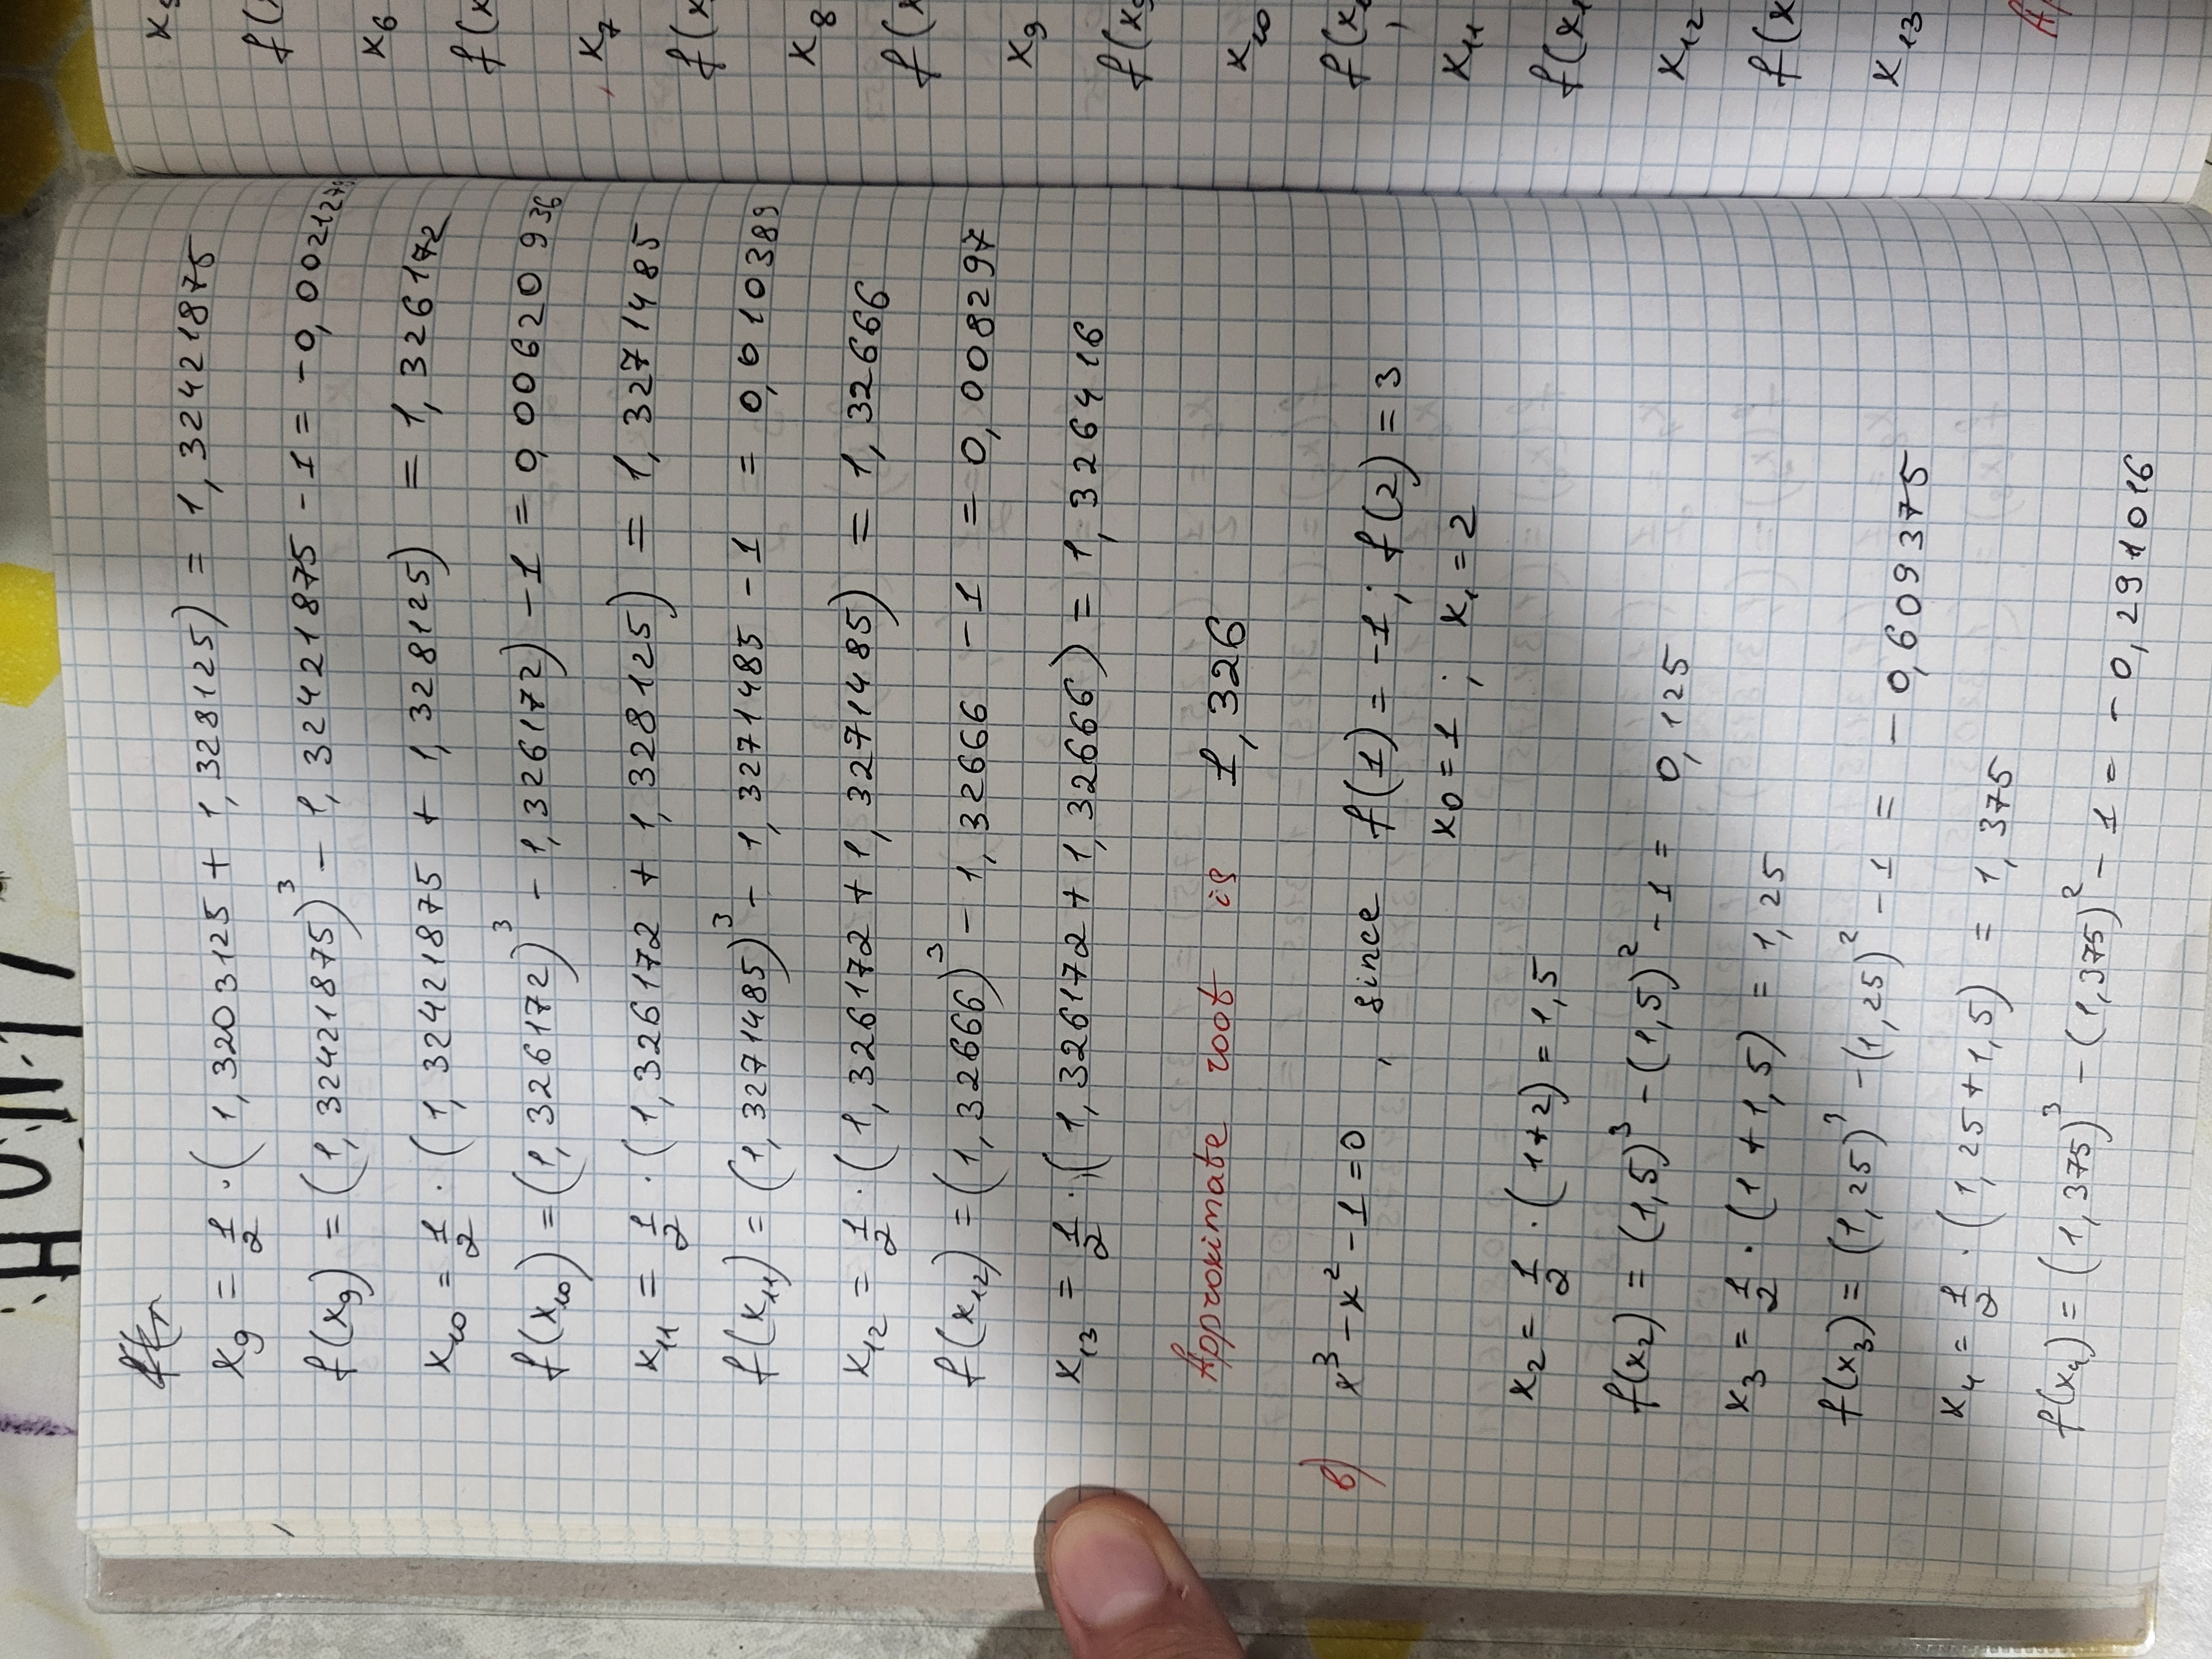 x₉ = 1/2 · (1,3203125 + 1,328125) = 1,32421875
f(x₉) = (1,32421875)³ - 1,32421875 - 1 = -0,0021279
x₁₀ = 1/2 · (1,32421875 + 1,328125) = 1,326172
f(x₁₀) = (1,326172)³ - 1,326172) - 1 = 0,00620936
x₁₁ = 1/2 · (1,326172 + 1,328125) = 1,3271485
f(x₁₁) = (1,3271485)³ - 1,3271485 - 1 = 0,010389
x₁₂ = 1/2 · (1,326172 + 1,3271485) = 1,32666
f(x₁₂) = (1,32666)³ - 1,32666 - 1 = 0,008297
x₁₃ = 1/2 · (1,326172 + 1,32666) = 1,326416
Approximate root is 1,326
в) x³ - x² - 1 = 0, since f(1) = -1; f(2) = 3
x₀ = 1; x₁ = 2
x₂ = 1/2 · (1+2) = 1,5
f(x₂) = (1,5)³ - (1,5)² - 1 = 0,125
x₃ = 1/2 · (1 + 1,5) = 1,25
f(x₃) = (1,25)³ - (1,25)² - 1 = -0,609375
x₄ = 1/2 · (1,25 + 1,5) = 1,375
f(x₄) = (1,375)³ - (1,375)² - 1 = -0,291016
x₆
f(x
x₇
f(x
x₈
f(x
x₉
f(x₉
x₁₀
f(x
x₁₁
f(x₁
x₁₂
f(x
x₁₃